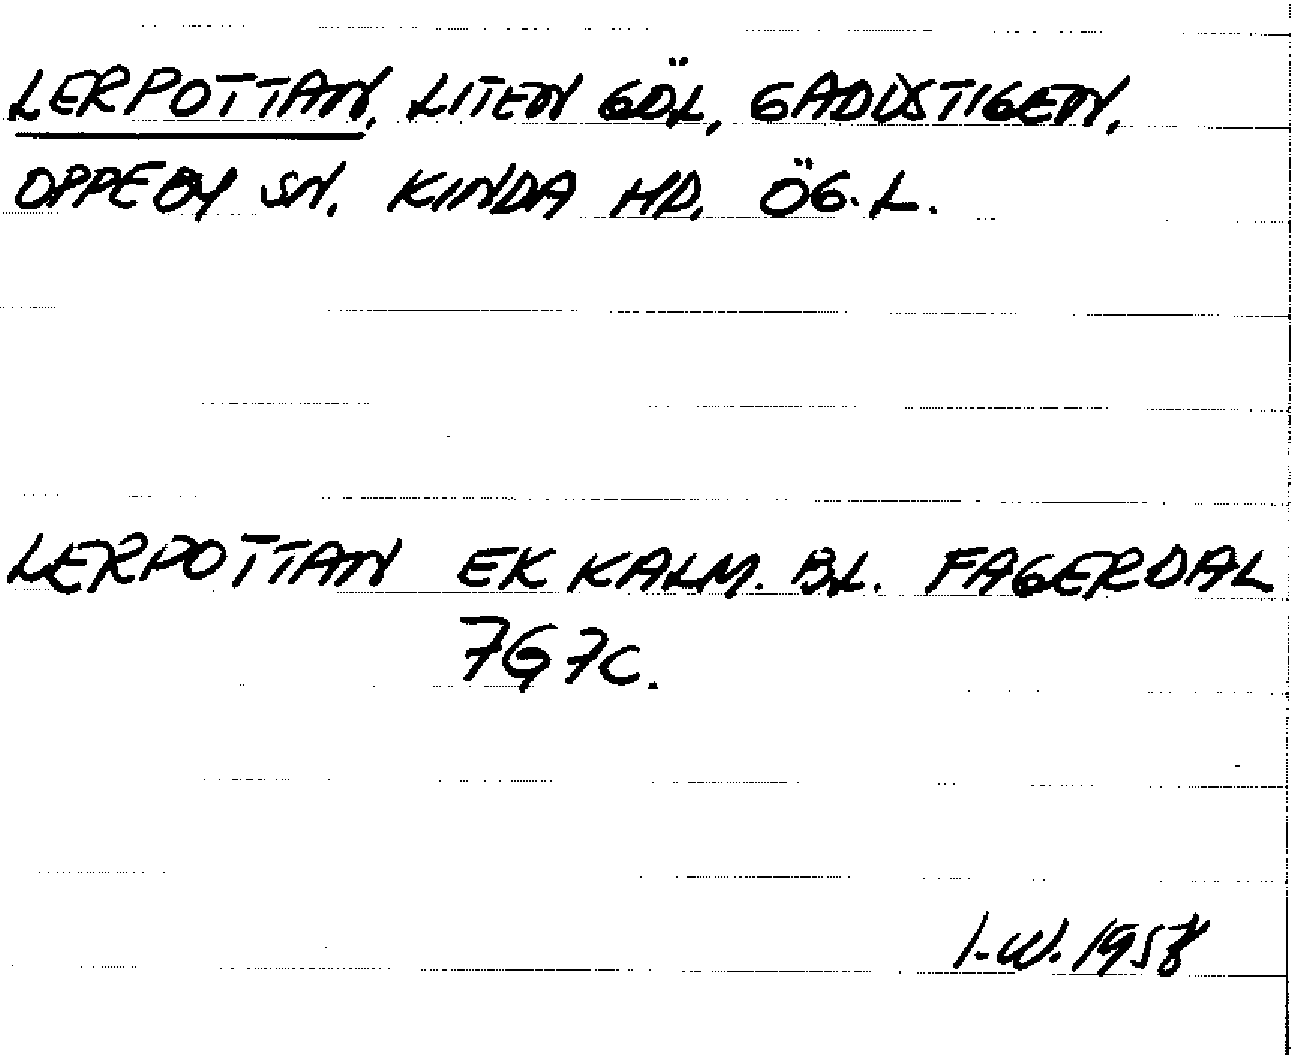 LERPOTTAN, LITEN GÖL, GADDSTIGEN,
OPPEBY SN. KINDA HD. ÖG. L.
LERPOTTAN EK KALM. BL. FAGERDAL
7G7C.
I.W. 1958